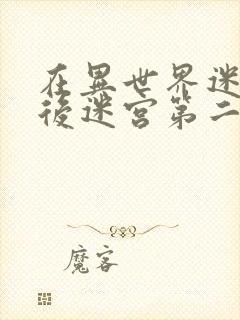 在異世界迷
後迷宮第二
魔客